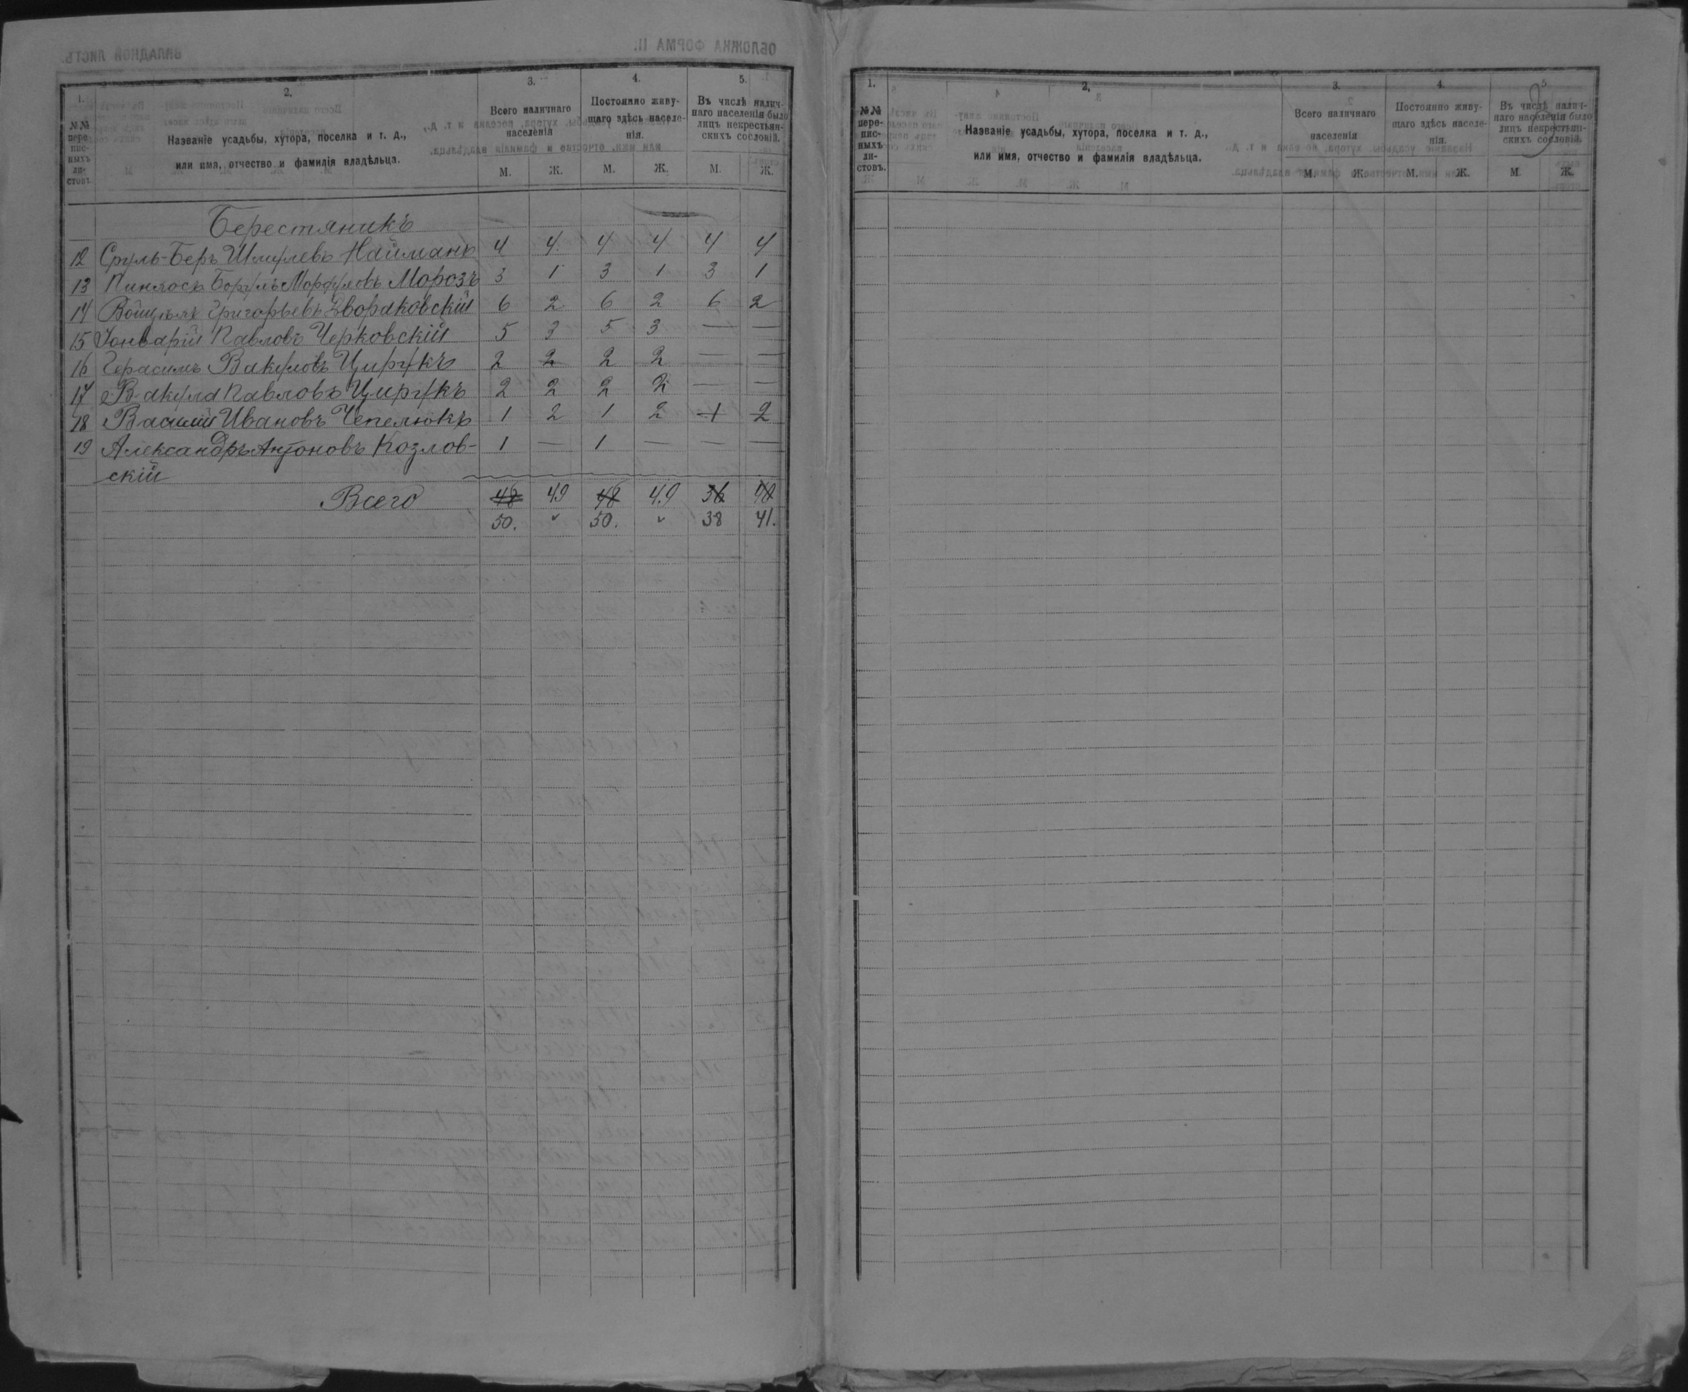 1. 2. 3. 4. 5.
№№ переписныхъ листовъ.
Названіе усадьбы, хутора, поселка и т. д.,
или имя, отчество и фамилія владѣльца.
Всего наличнаго
населенія
Постоянно живу-
щаго здѣсь населе-
нія.
Въ числѣ налич-
наго населенія было
лицъ некрестьян-
скихъ сословій.
М. Ж. М. Ж. М. Ж.
Берестяникъ
12 Сруль-Беръ Шмулевъ Найманъ 4 4 4 4 4 4
13 Морозъ 3 1 3 1 3 1
14 Григорьевъ 6 2 6 2 6 2
15 Павловъ Черковскій 5 3 5 3 — —
16 Герасимъ Вакуловъ Цирукъ 2 2 2 2 — —
17 Вакула Павловъ Цирукъ 2 2 2 2 — —
18 Василий Ивановъ Чепелюкъ 1 2 1 2 1 2
19 Александръ Антоновъ Козлов- 1 — 1 — — —
скій
Всего 48 49 48 49 36 40
50. " 50. " 38 41.
1. 2. 3. 4. 5.
№№ переписныхъ листовъ.
Названіе усадьбы, хутора, поселка и т. д.,
или имя, отчество и фамилія владѣльца.
Всего наличнаго
населенія
Постоянно живу-
щаго здѣсь населе-
нія.
Въ числѣ налич-
наго населенія было
лицъ некрестьян-
скихъ сословій.
М. Ж. М. Ж. М. Ж.